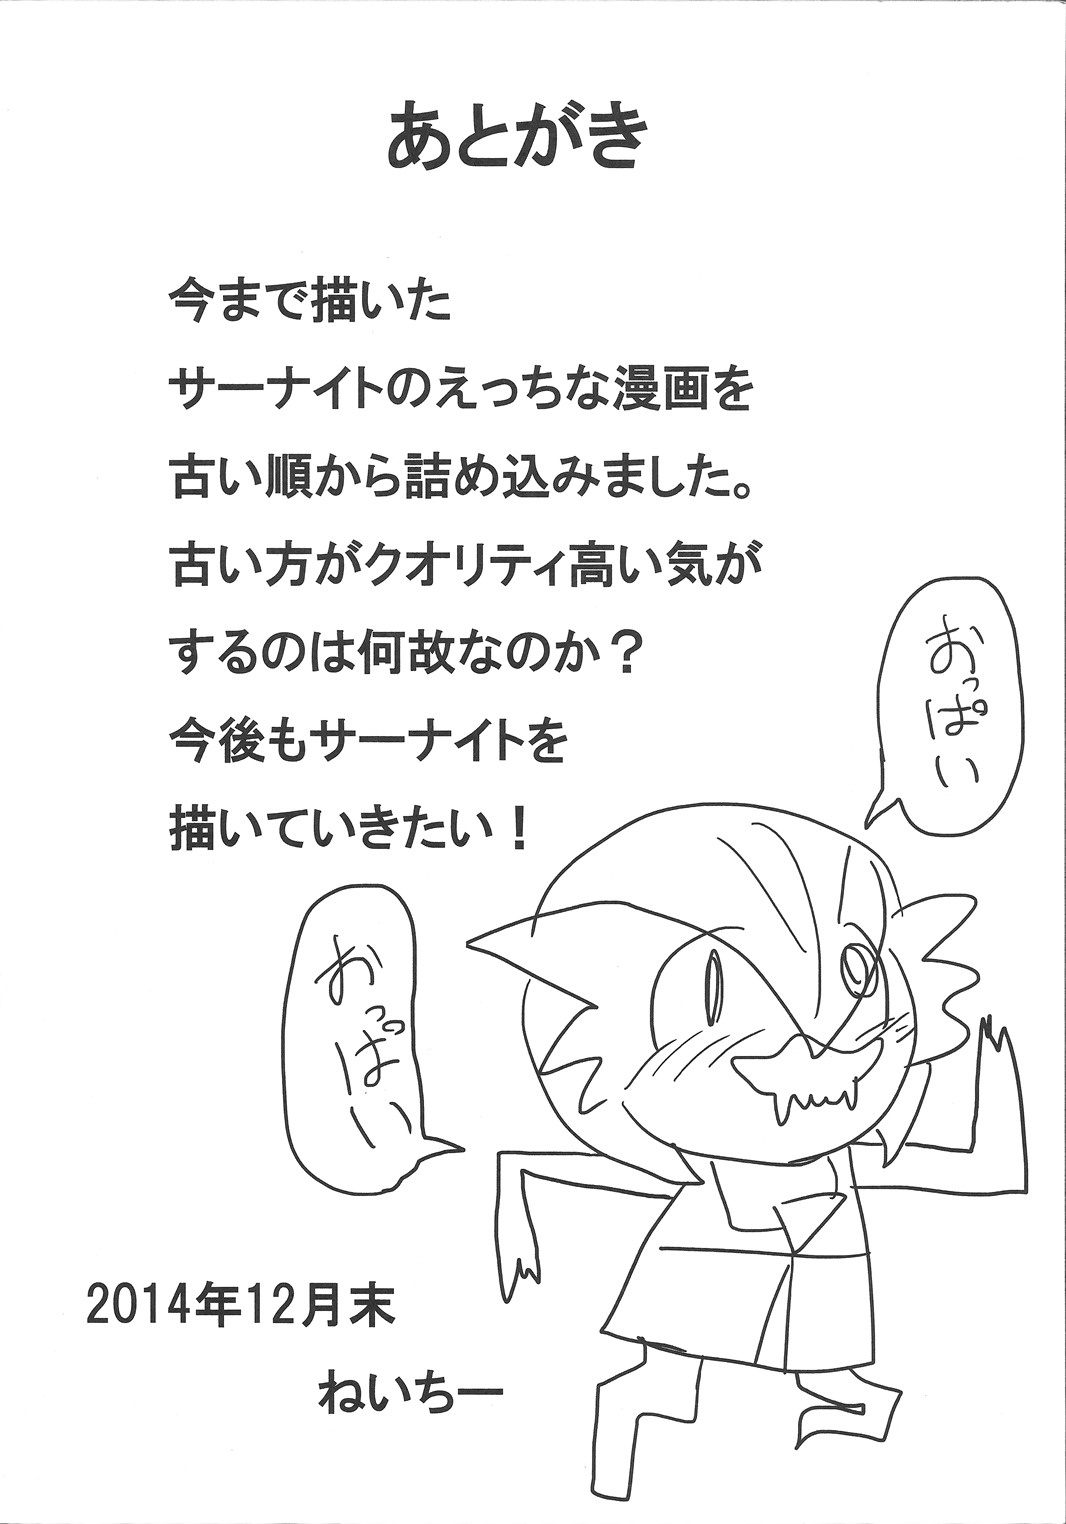 あとがき
今まで描いた
サーナイトのえっちな漫画を
古い順から詰め込みました。
古い方がクオリティ高い気が
するのは何故なのか？
今後もサーナイトを
描いていきたい！
おっぱい
おっぱい
2014年12月末
ねいちー